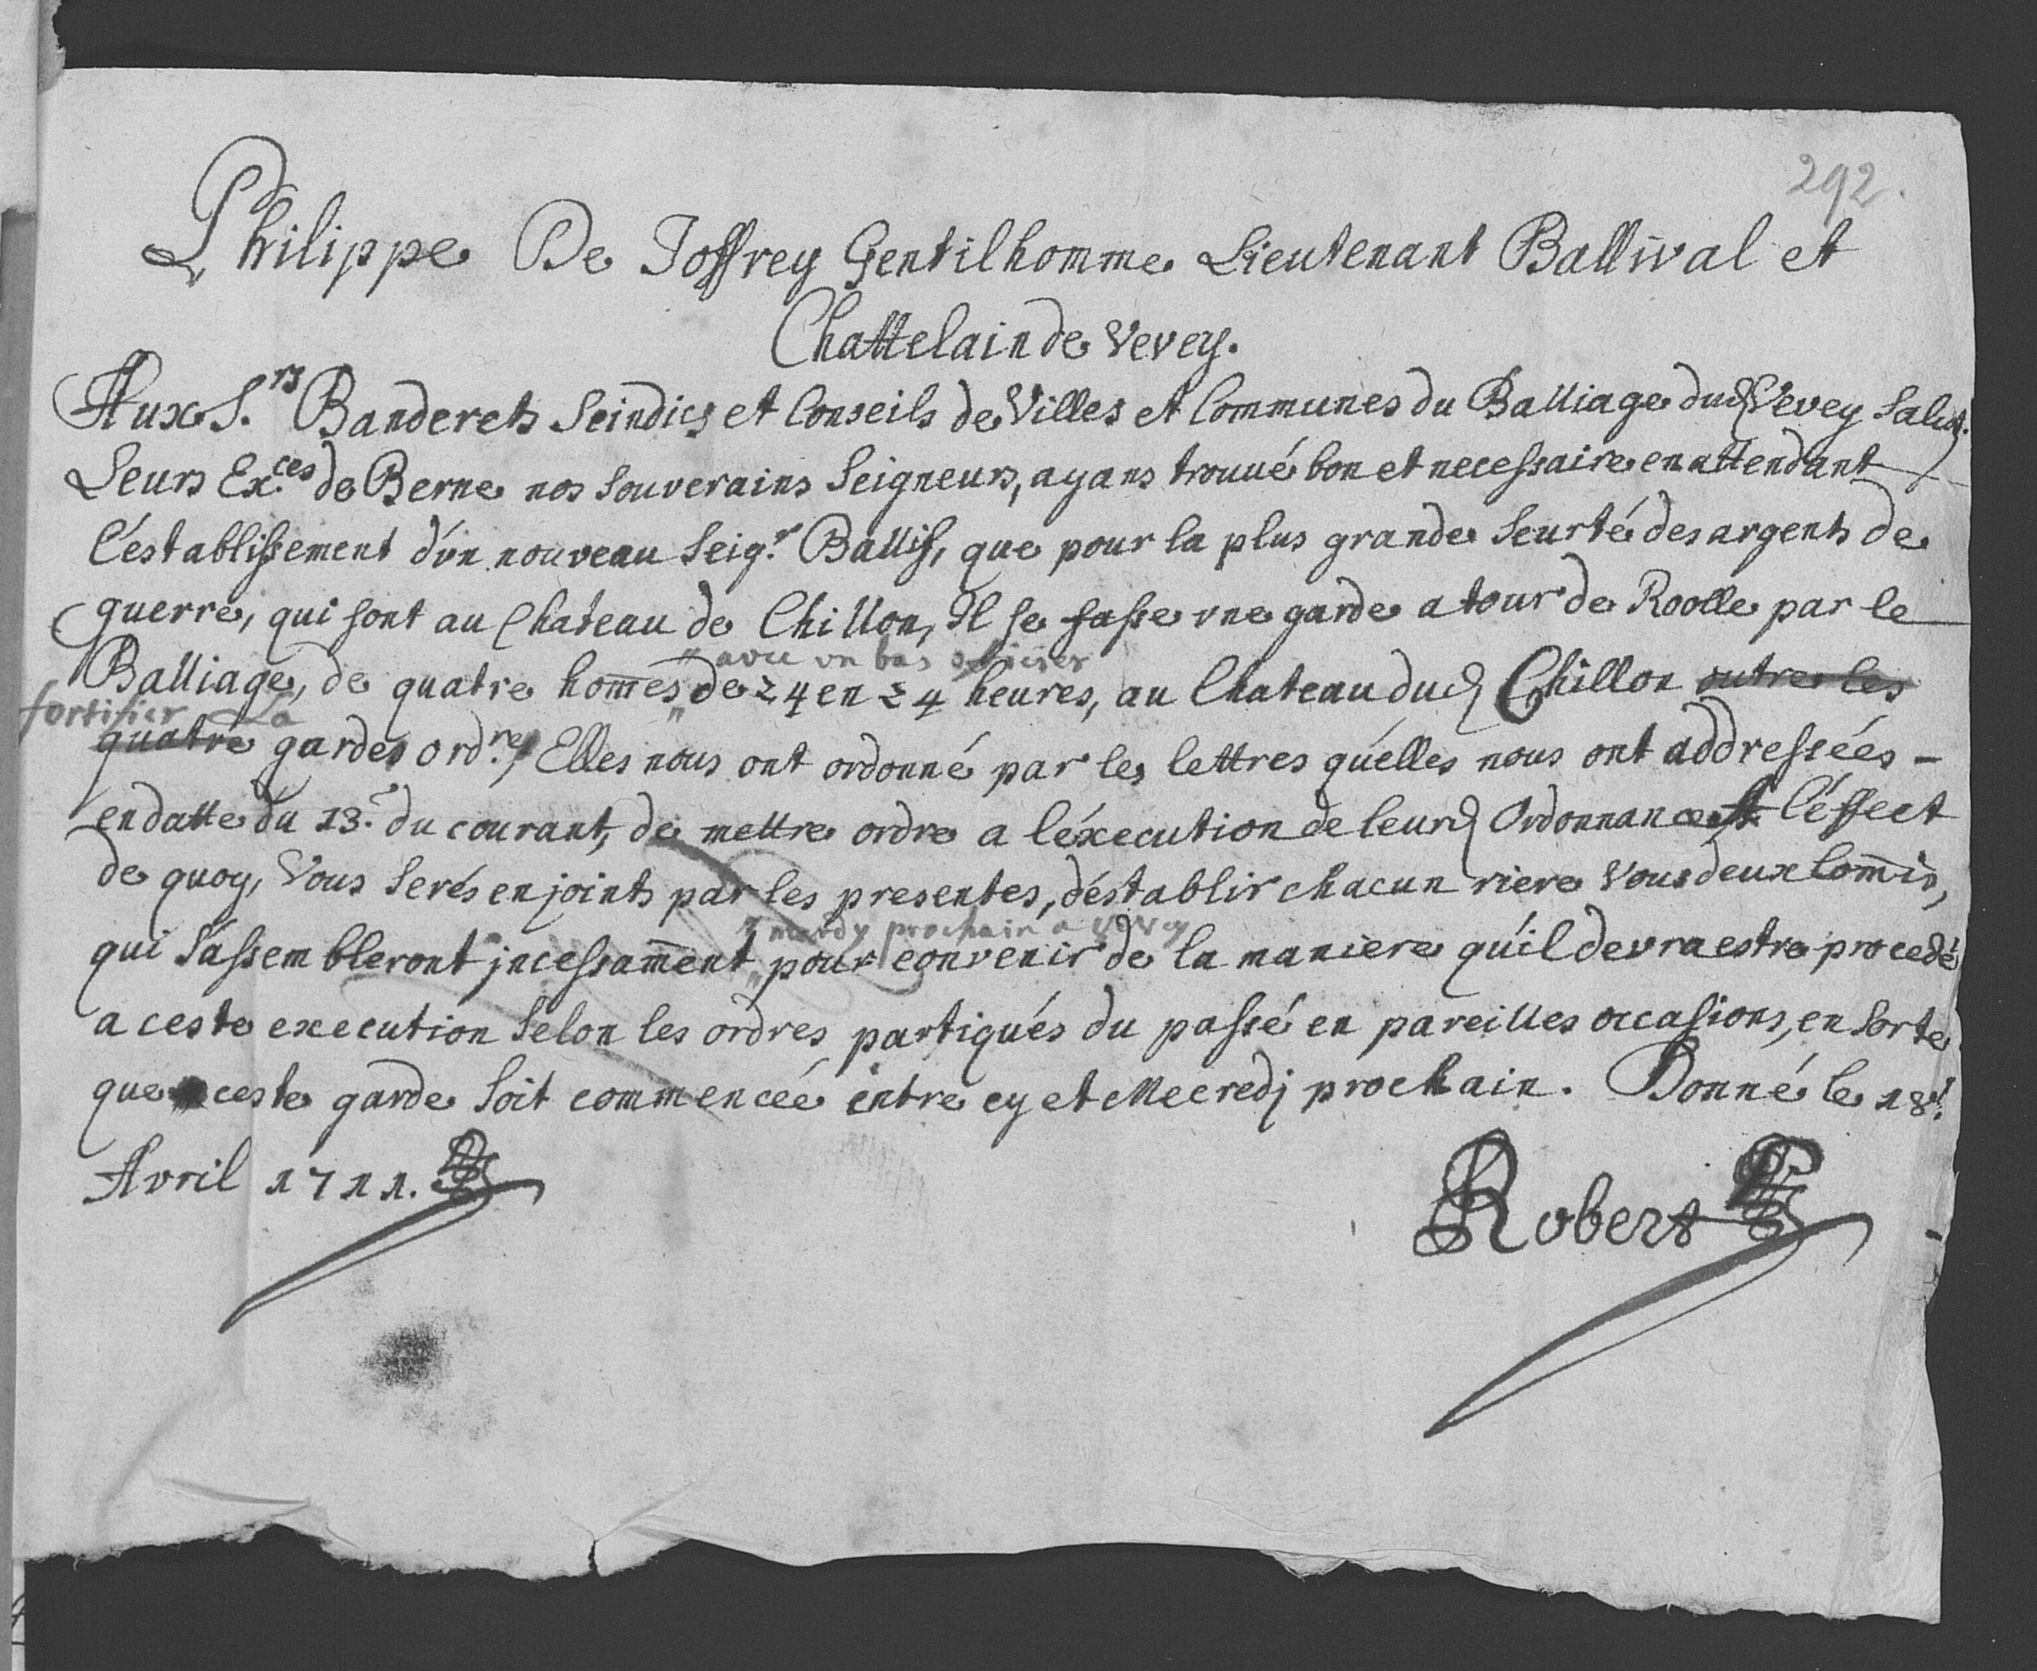 292.
Philippe De Joffrey Gentilhomme Lieutenant Ballival et
Chattelain de Vevey.
Aux S.rs Banderets Seindics et Conseils de Villes et Communes du Balliage dud Vevey Salut.
Leurs Ex.ces de Berne nos Souverains Seigneurs, ayans trouué bon et necessaire en attendant
l'éstablissement d'vn nouveau Seig.r Ballif, que pour la plus grande Seurté des argents de
guerre, qui sont au Chateau de Chillon, Il se fasse vne garde a tour de Roolle par le
avec vn bas officier
Balliage, de quatre hom̄es de 24 en 24 heures, au Chateau dud Chillon outre les
fortifier La
quatre gardes ord.res, Elles nous ont ordonné par les lettres qu'elles nous ont addressées -
en datte du 13.e du courant, de mettre ordre a l'éxecution de leurd Ordonnance l'éffect
de quoy, Vous Serés enjoints par les presentes, d'éstablir chacun riere Vous deux Com̄is,
mardy prochain a Vevey
qui S'assembleront jncessam̄ent pour convenir de la maniere qu'il devra estre procedé
a ceste execution Selon les ordres partiqués du passé en pareilles occasions, en Sorte
que ceste garde Soit commencée entre cy et Mecredj prochain. Donné le 18.e
Avril 1711.
Robert